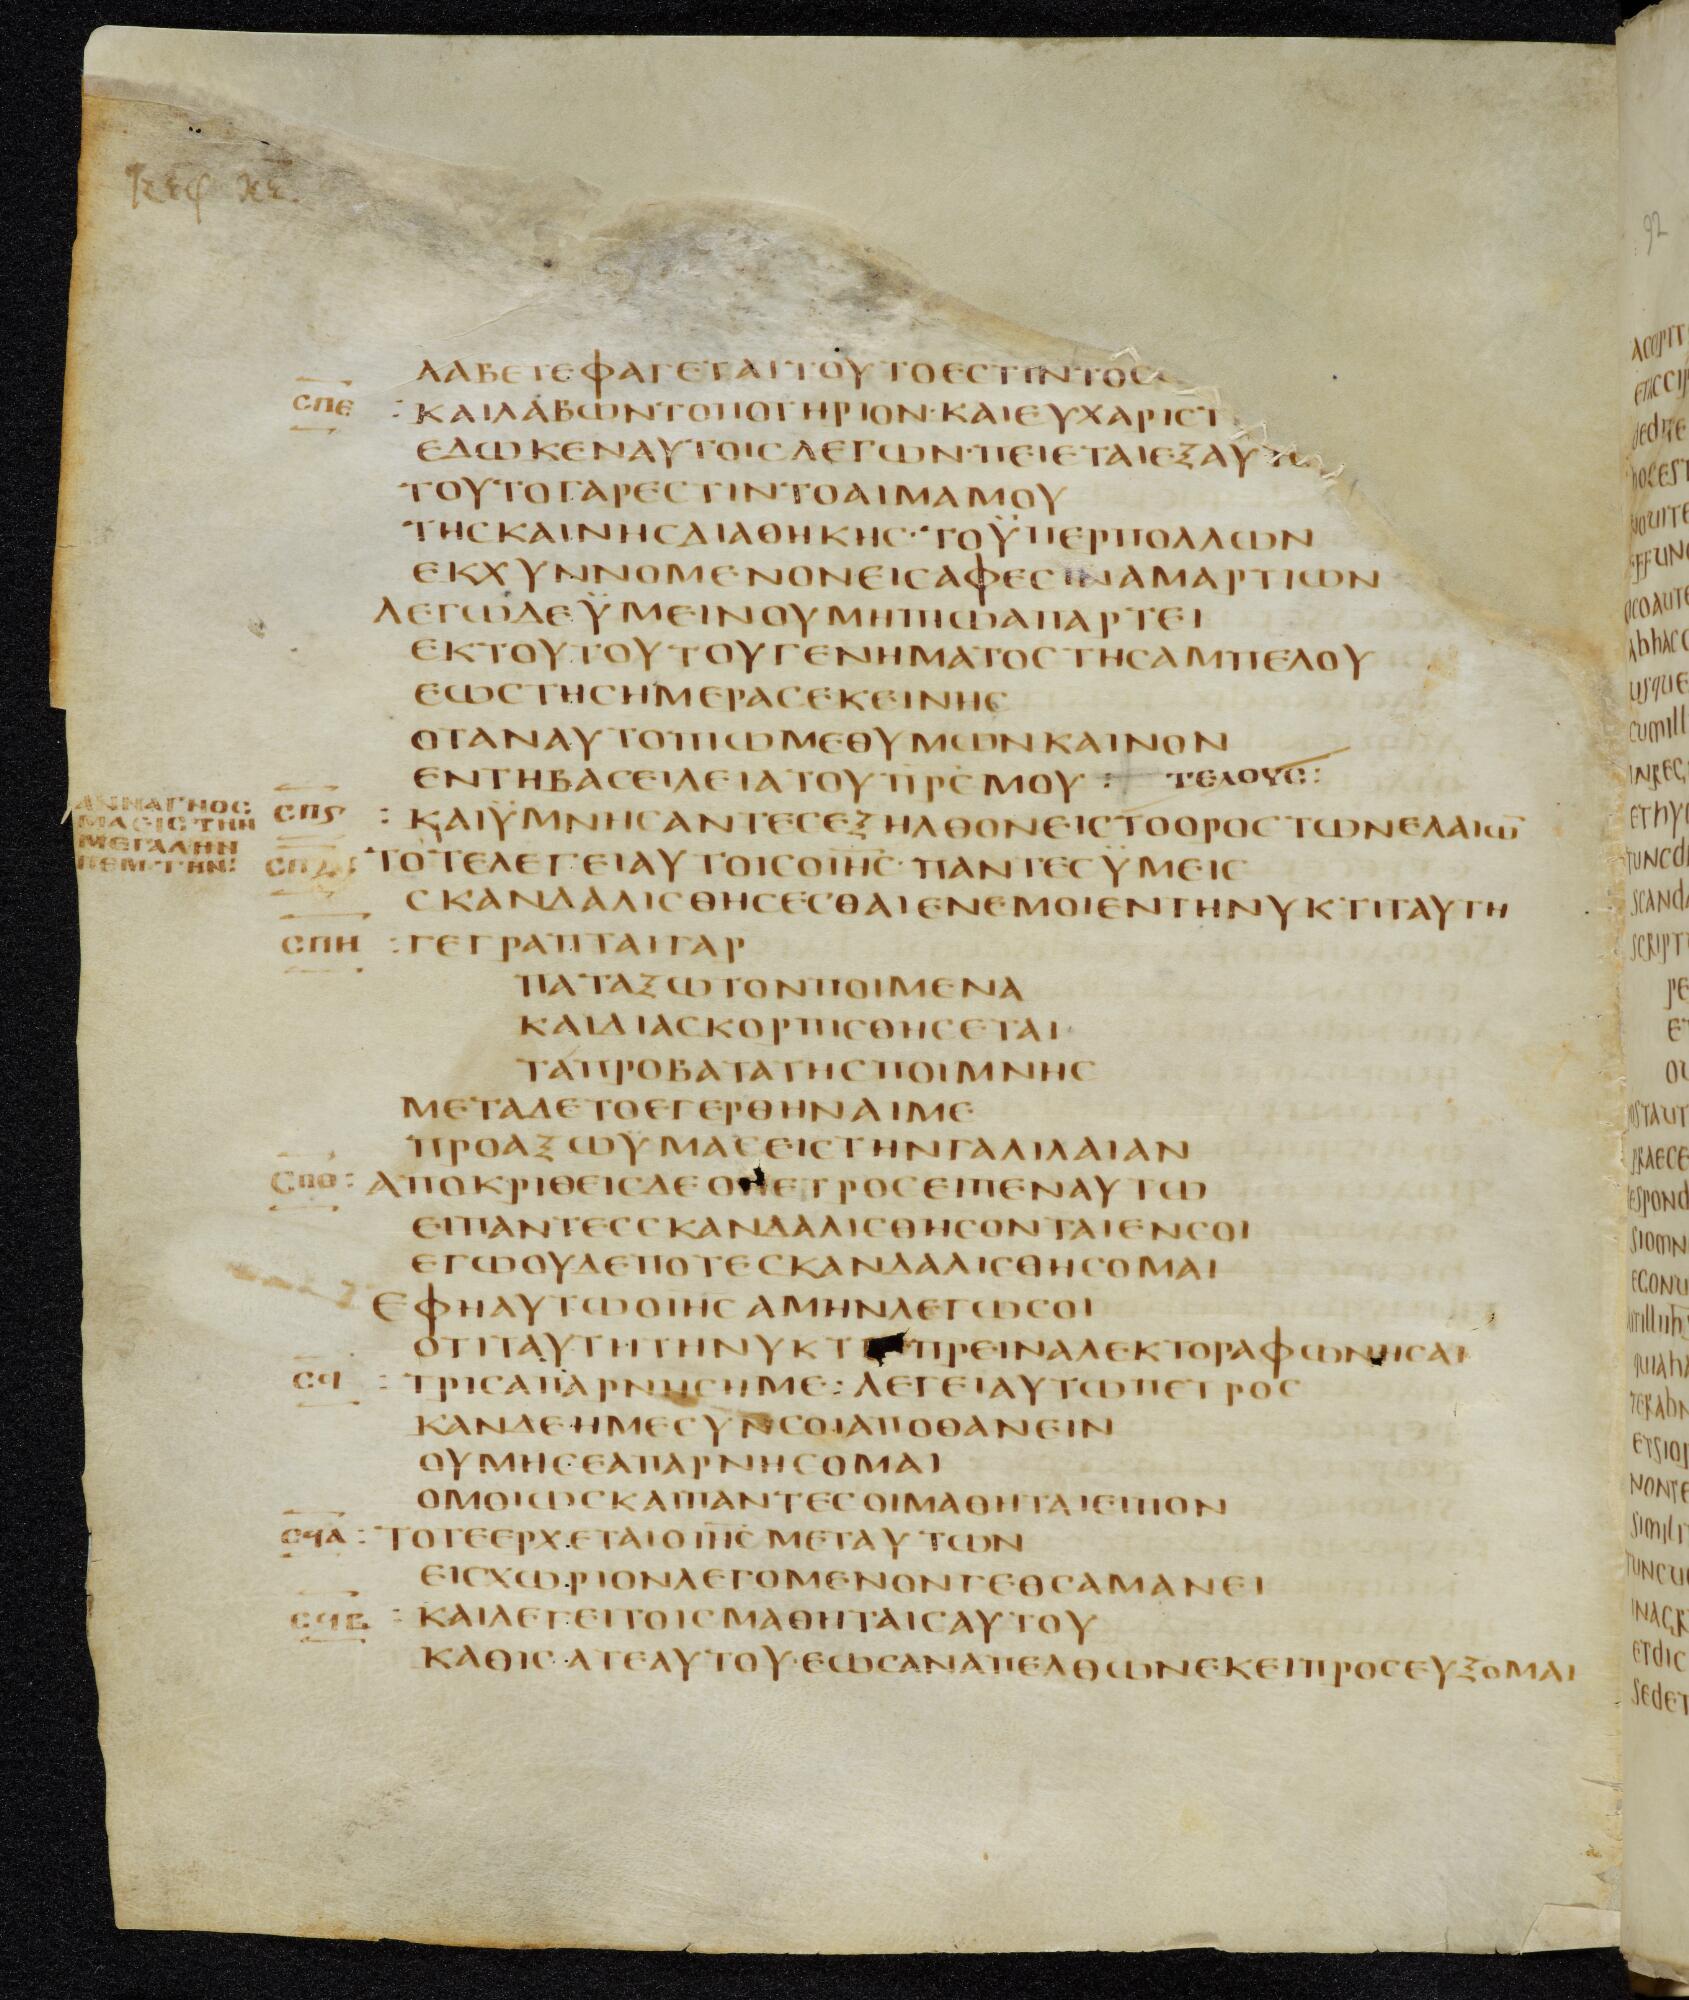 Κεφ κϛ.
ΛΑΒΕΤΕΦΑΓΕΤΑΙΤΟΥΤΟΕΣΤΙΝΤΟΣ
ΣΠΕ : ΚΑΙΛΑΒΩΝΤΟΠΟΤΗΡΙΟΝ·ΚΑΙΕΥΧΑΡΙΣΤ
ΕΔΩΚΕΝΑΥΤΟΙΣΛΕΓΩΝ·ΠΕΙΕΤΑΙΕΞΑΥ
ΤΟΥΤΟΓΑΡΕΣΤΙΝΤΟΑΙΜΑΜΟΥ
ΤΗΣΚΑΙΝΗΣΔΙΑΘΗΚΗΣ·ΤΟΫΠΕΡΠΟΛΛΩΝ
ΕΚΧΥΝΝΟΜΕΝΟΝΕΙΣΑΦΕΣΙΝΑΜΑΡΤΙΩΝ
ΛΕΓΩΔΕΫΜΕΙΝΟΥΜΗΠΙΩΑΠΑΡΤΕΙ
ΕΚΤΟΥΤΟΥΤΟΥΓΕΝΗΜΑΤΟΣΤΗΣΑΜΠΕΛΟΥ
ΕΩΣΤΗΣΗΜΕΡΑΣΕΚΕΙΝΗΣ
ΟΤΑΝΑΥΤΟΠΙΩΜΕΘΥΜΩΝΚΑΙΝΟΝ
ΕΝΤΗΒΑΣΕΙΛΕΙΑΤΟΥΠ̅Ρ̅Σ̅ΜΟΥ : ΤΕΛΟΥΣ:
ΑΝΝΑΓΝΟΣ
ΜΑ
ΜΕΓΑΛΗΝ
ΠΕΜΤΗΝ:
ΣΠϚ : ΚΑΙΫΜΝΗΣΑΝΤΕΣΕΞΗΛΘΟΝΕΙΣΤΟΟΡΟΣΤΩΝΕΛΑΙΩ̅
ΣΠΖ: ΤΟΤΕΛΕΓΕΙΑΥΤΟΙΣΟΙ̅Η̅Σ̅·ΠΑΝΤΕΣΫΜΕΙΣ
ΣΚΑΝΔΑΛΙΣΘΗΣΕΣΘΑΙΕΝΕΜΟΙΕΝΤΗΝΥΚΤΙΤΑΥΤΗ
ΣΠΗ : ΓΕΓΡΑΠΤΑΙΓΑΡ
ΠΑΤΑΞΩΤΟΝΠΟΙΜΕΝΑ
ΚΑΙΔΙΑΣΚΟΡΠΙΣΘΗΣΕΤΑΙ
ΤΑΠΡΟΒΑΤΑΤΗΣΠΟΙΜΝΗΣ
ΜΕΤΑΔΕΤΟΕΓΕΡΘΗΝΑΙΜΕ
ΠΡΟΑΞΩΫΜΑΣΕΙΣΤΗΝΓΑΛΙΛΑΙΑΝ
ΣΠΘ: ΑΠΟΚΡΙΘΕΙΣΔΕΟΠΕΤΡΟΣΕΙΠΕΝΑΥΤΩ
ΕΙΠΑΝΤΕΣΣΚΑΝΔΑΛΙΣΘΗΣΟΝΤΑΙΕΝΣΟΙ
ΕΓΩΟΥΔΕΠΟΤΕΣΚΑΝΔΑΛΙΣΘΗΣΟΜΑΙ
ΕΦΗΑΥΤΩΟΙ̅Η̅Σ̅ΑΜΗΝΛΕΓΩΣΟΙ
ΟΤΙΤΑΥΤΗΤΗΝΥΚΤΙ ΠΡΕΙΝΑΛΕΚΤΟΡΑΦΩΝΗΣΑΙ
ΣϞ : ΤΡΙΣΑΠΑΡΝΗΣΗΜΕ: ΛΕΓΕΙΑΥΤΩΠΕΤΡΟΣ
ΚΑΝΔΕΗΜΕΣΥΝΣΟΙΑΠΟΘΑΝΕΙΝ
ΟΥΜΗΣΕΑΠΑΡΝΗΣΟΜΑΙ
ΟΜΟΙΩΣΚΑΙΠΑΝΤΕΣΟΙΜΑΘΗΤΑΙΕΙΠΟΝ
ΣϞΑ : ΤΟΤΕΕΡΧΕΤΑΙΟΙ̅Η̅Σ̅ΜΕΤΑΥΤΩΝ
ΕΙΣΧΩΡΙΟΝΛΕΓΟΜΕΝΟΝΓΕΘΣΑΜΑΝΕΙ
ΣϞΒ : ΚΑΙΛΕΓΕΙΤΟΙΣΜΑΘΗΤΑΙΣΑΥΤΟΥ
ΚΑΘΙΣΑΤΕΑΥΤΟΥ·ΕΩΣΑΝΑΠΕΛΘΩΝΕΚΕΙΠΡΟΣΕΥΞΟΜΑΙ
92